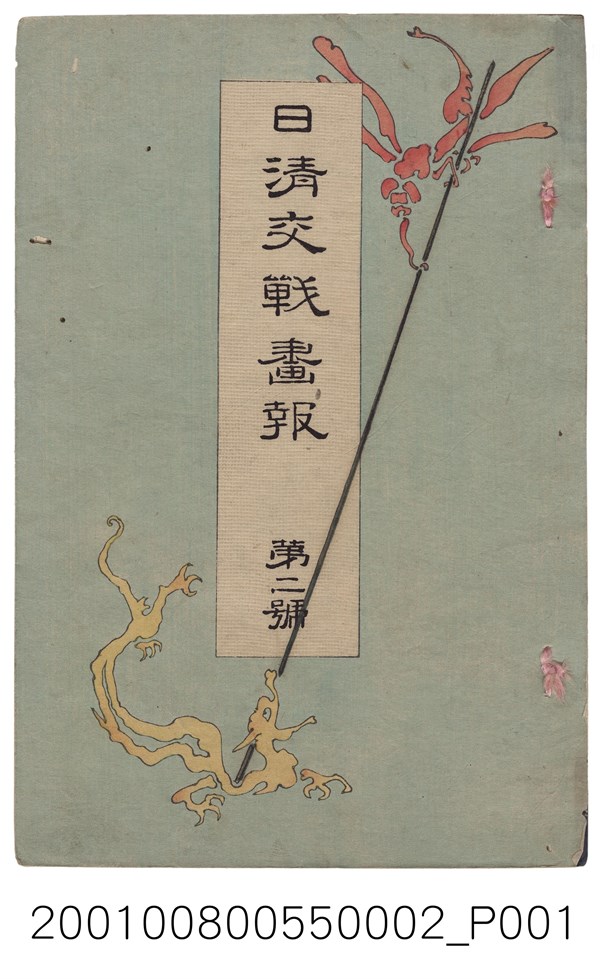 日清交戦畫報
第二號
200100800550002_P001